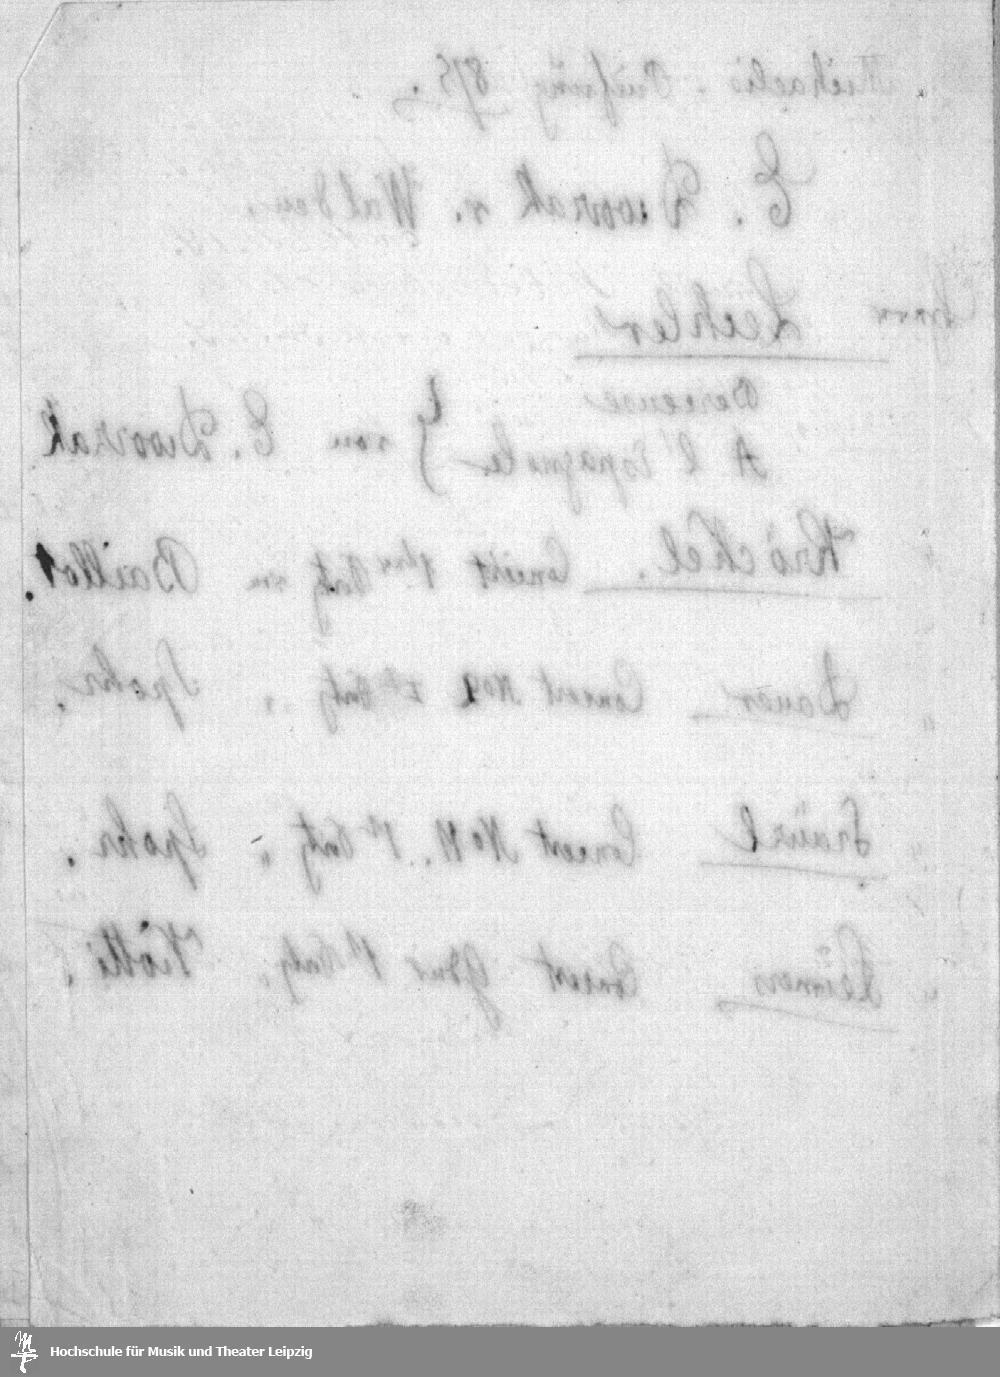 Michaelis-Prüfung 1875.
E. Dworzak v. Walden.
Herr Lechler
Berceuse
A l'Espagnole } von E. Dworzak
" Kröchel. Concert 1ter Satz von Baillot.
" Dauer Concert No 2 Satz " Spohr.
" Fräuzl Concert No 11. 1r Satz " Spohr.
" Concert Gdur 1r Satz. Viotti.
Hochschule für Musik und Theater Leipzig